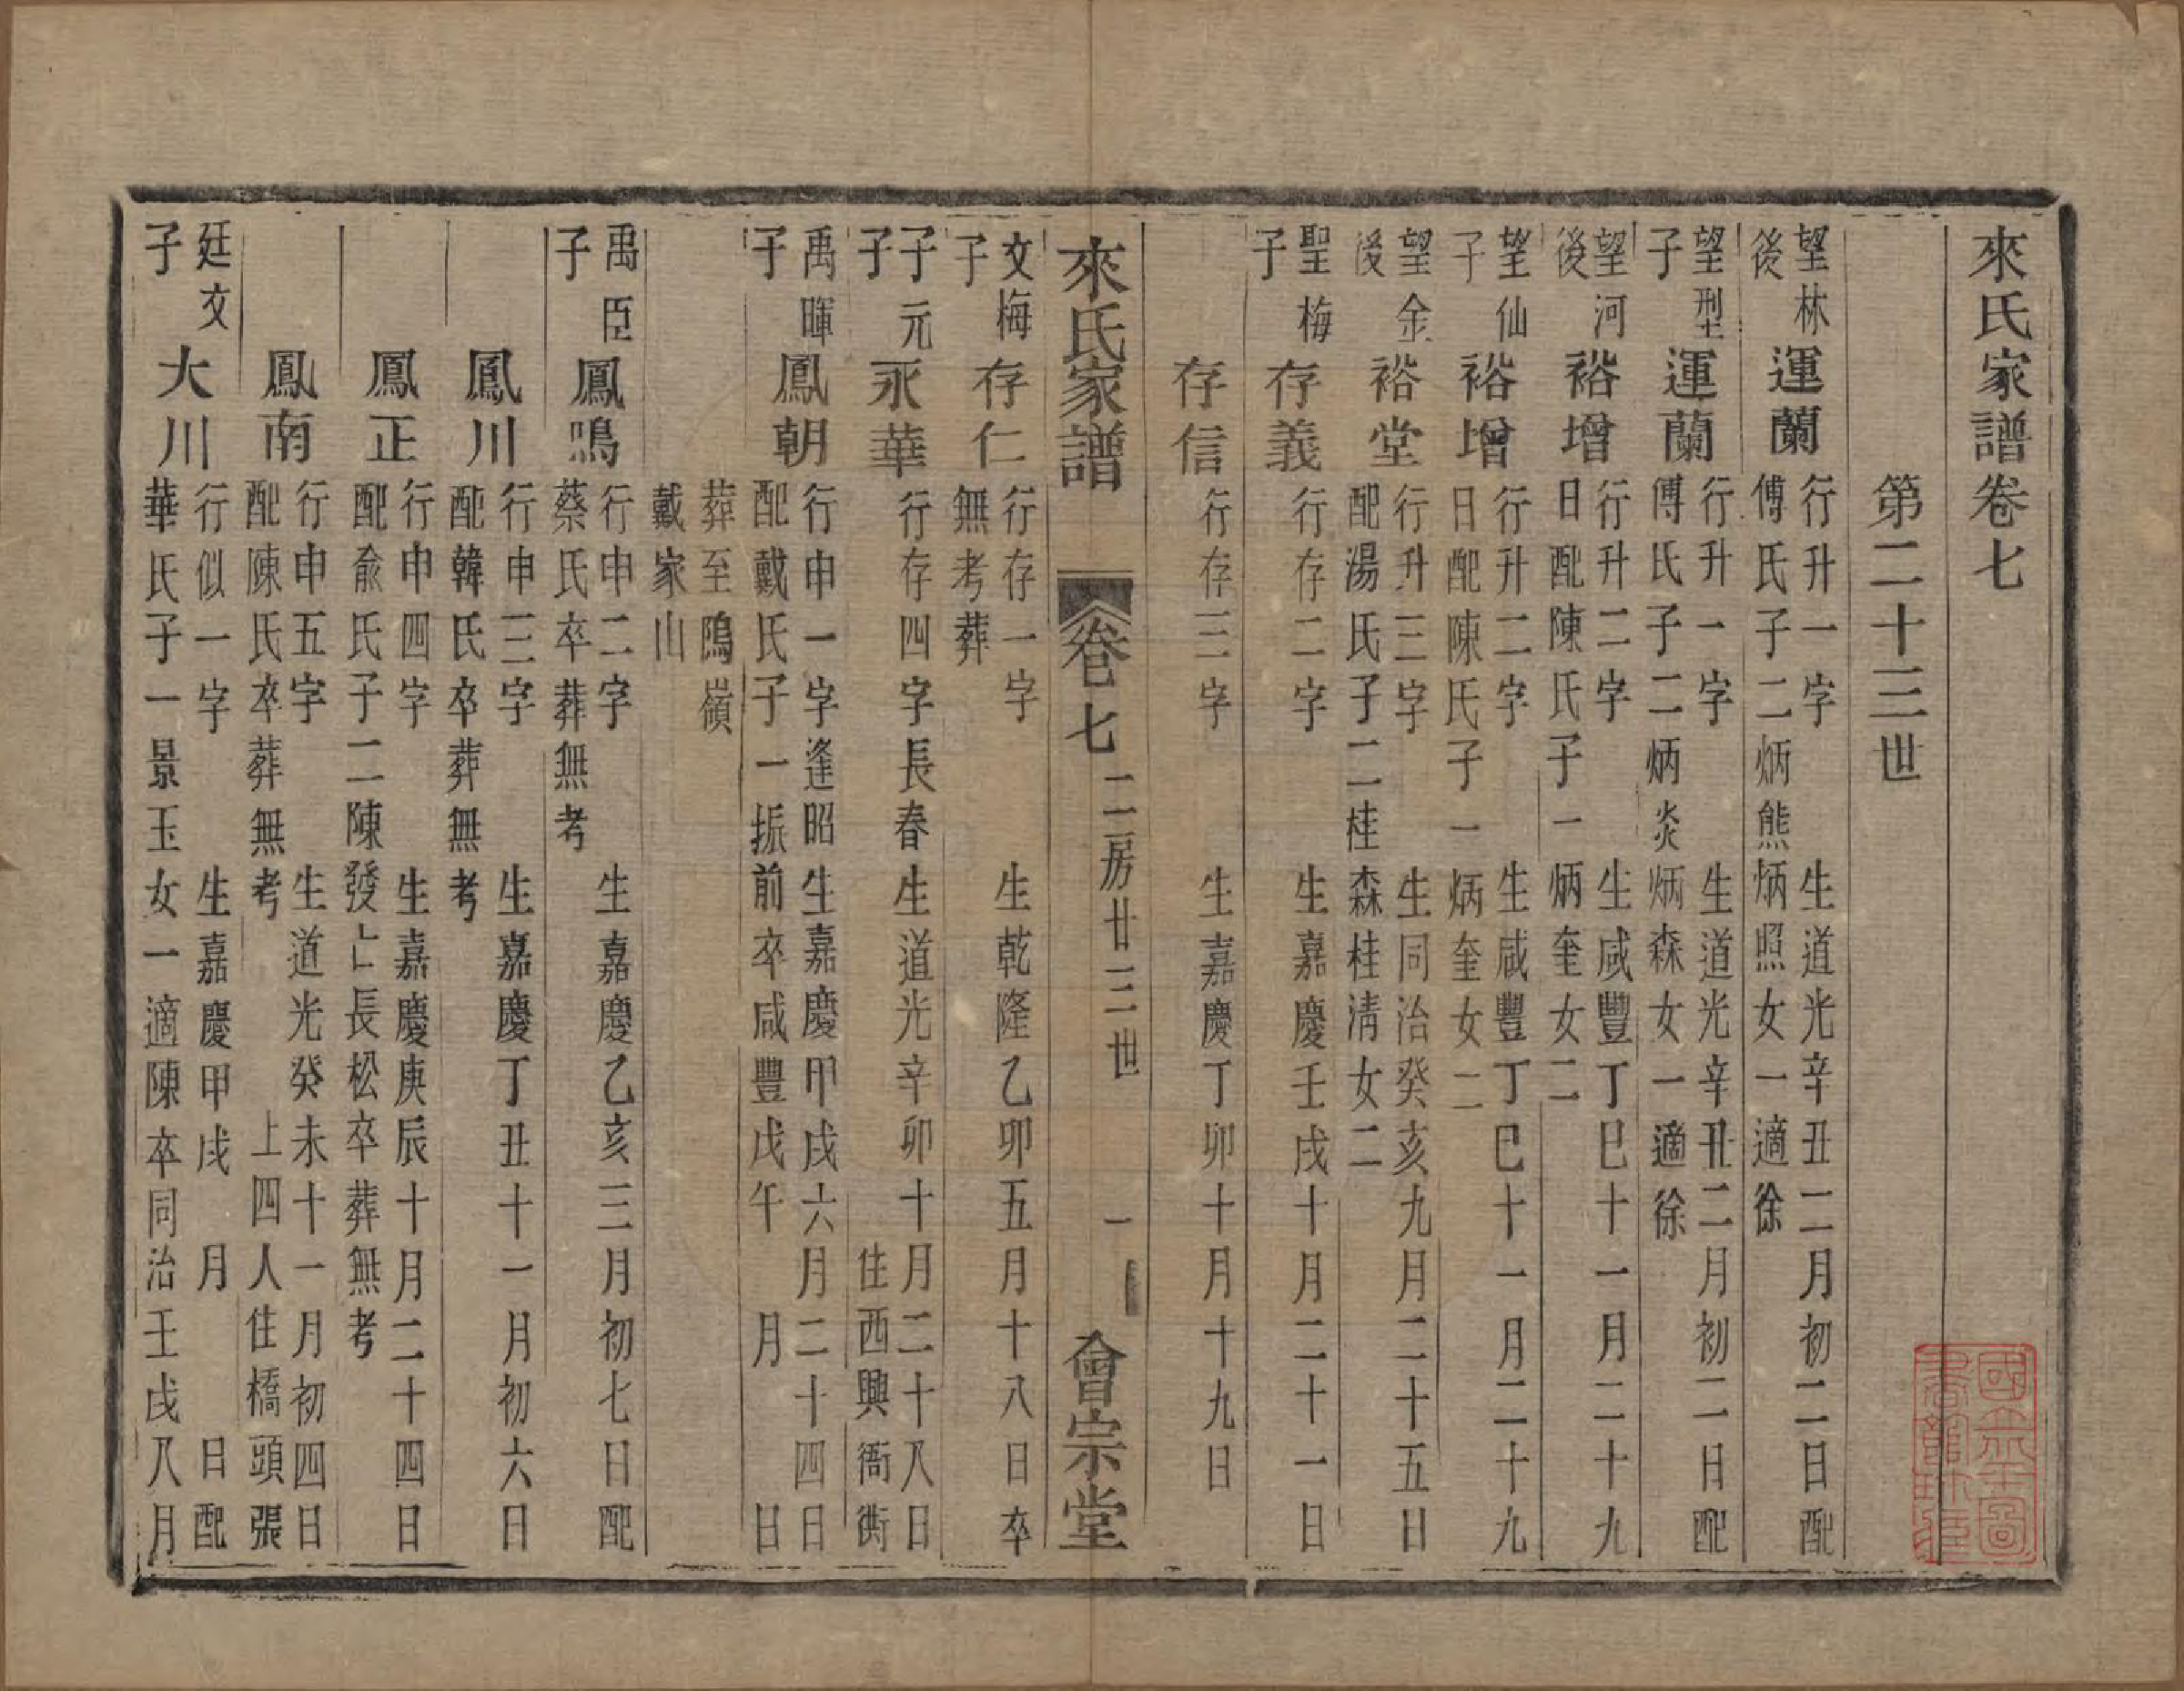 來氏家譜卷七
第二十三世
望林
後
運蘭
行升一字 生道光辛丑二月初二日配
傅氏子二炳熊炳照女一適徐
望型
子
運蘭
行升一字 生道光辛丑二月初二日配
傅氏子二炳炎炳森女一適徐
望河
後
裕增
行升二字 生咸豐丁巳十一月二十九
日配陳氏子一炳奎女二
望仙
子
裕增
行升二字 生咸豐丁巳十一月二十九
日配陳氏子一炳奎女二
望金
後
裕堂
行升三字 生同治癸亥九月二十五日
配湯氏子二桂森桂清女二
聖梅
子
存義
行存二字 生嘉慶壬戌十月二十一日
存信
行存三字 生嘉慶丁卯十月十九日
來氏家譜 卷七 二房廿三世 一 會宗堂
文梅
子
存仁
行存一字 生乾隆乙卯五月十八日卒
無考葬
子元
子
永華
行存四字長春 生道光辛卯十月二十八日
住西興衙衖
禹暉
子
鳳朝
行申一字逢昭 生嘉慶甲戌六月二十四日
配戴氏子一振前卒咸豐戊午 月 日
葬至鴎嶺
戴家山
禹臣
子
鳳鳴
行申二字 生嘉慶乙亥三月初七日配
蔡氏卒葬無考
鳳川
行申三字 生嘉慶丁丑十一月初六日
配韓氏卒葬無考
鳳正
行申四字 生嘉慶庚辰十月二十四日
配俞氏子二陳發亡長松卒葬無考
鳳南
行申五字 生道光癸未十一月初四日
配陳氏卒葬無考 上四人住橋頭張
廷文
子
大川
行似一字 生嘉慶甲戌 月 日配
華氏子一景玉女一適陳卒同治壬戌八月